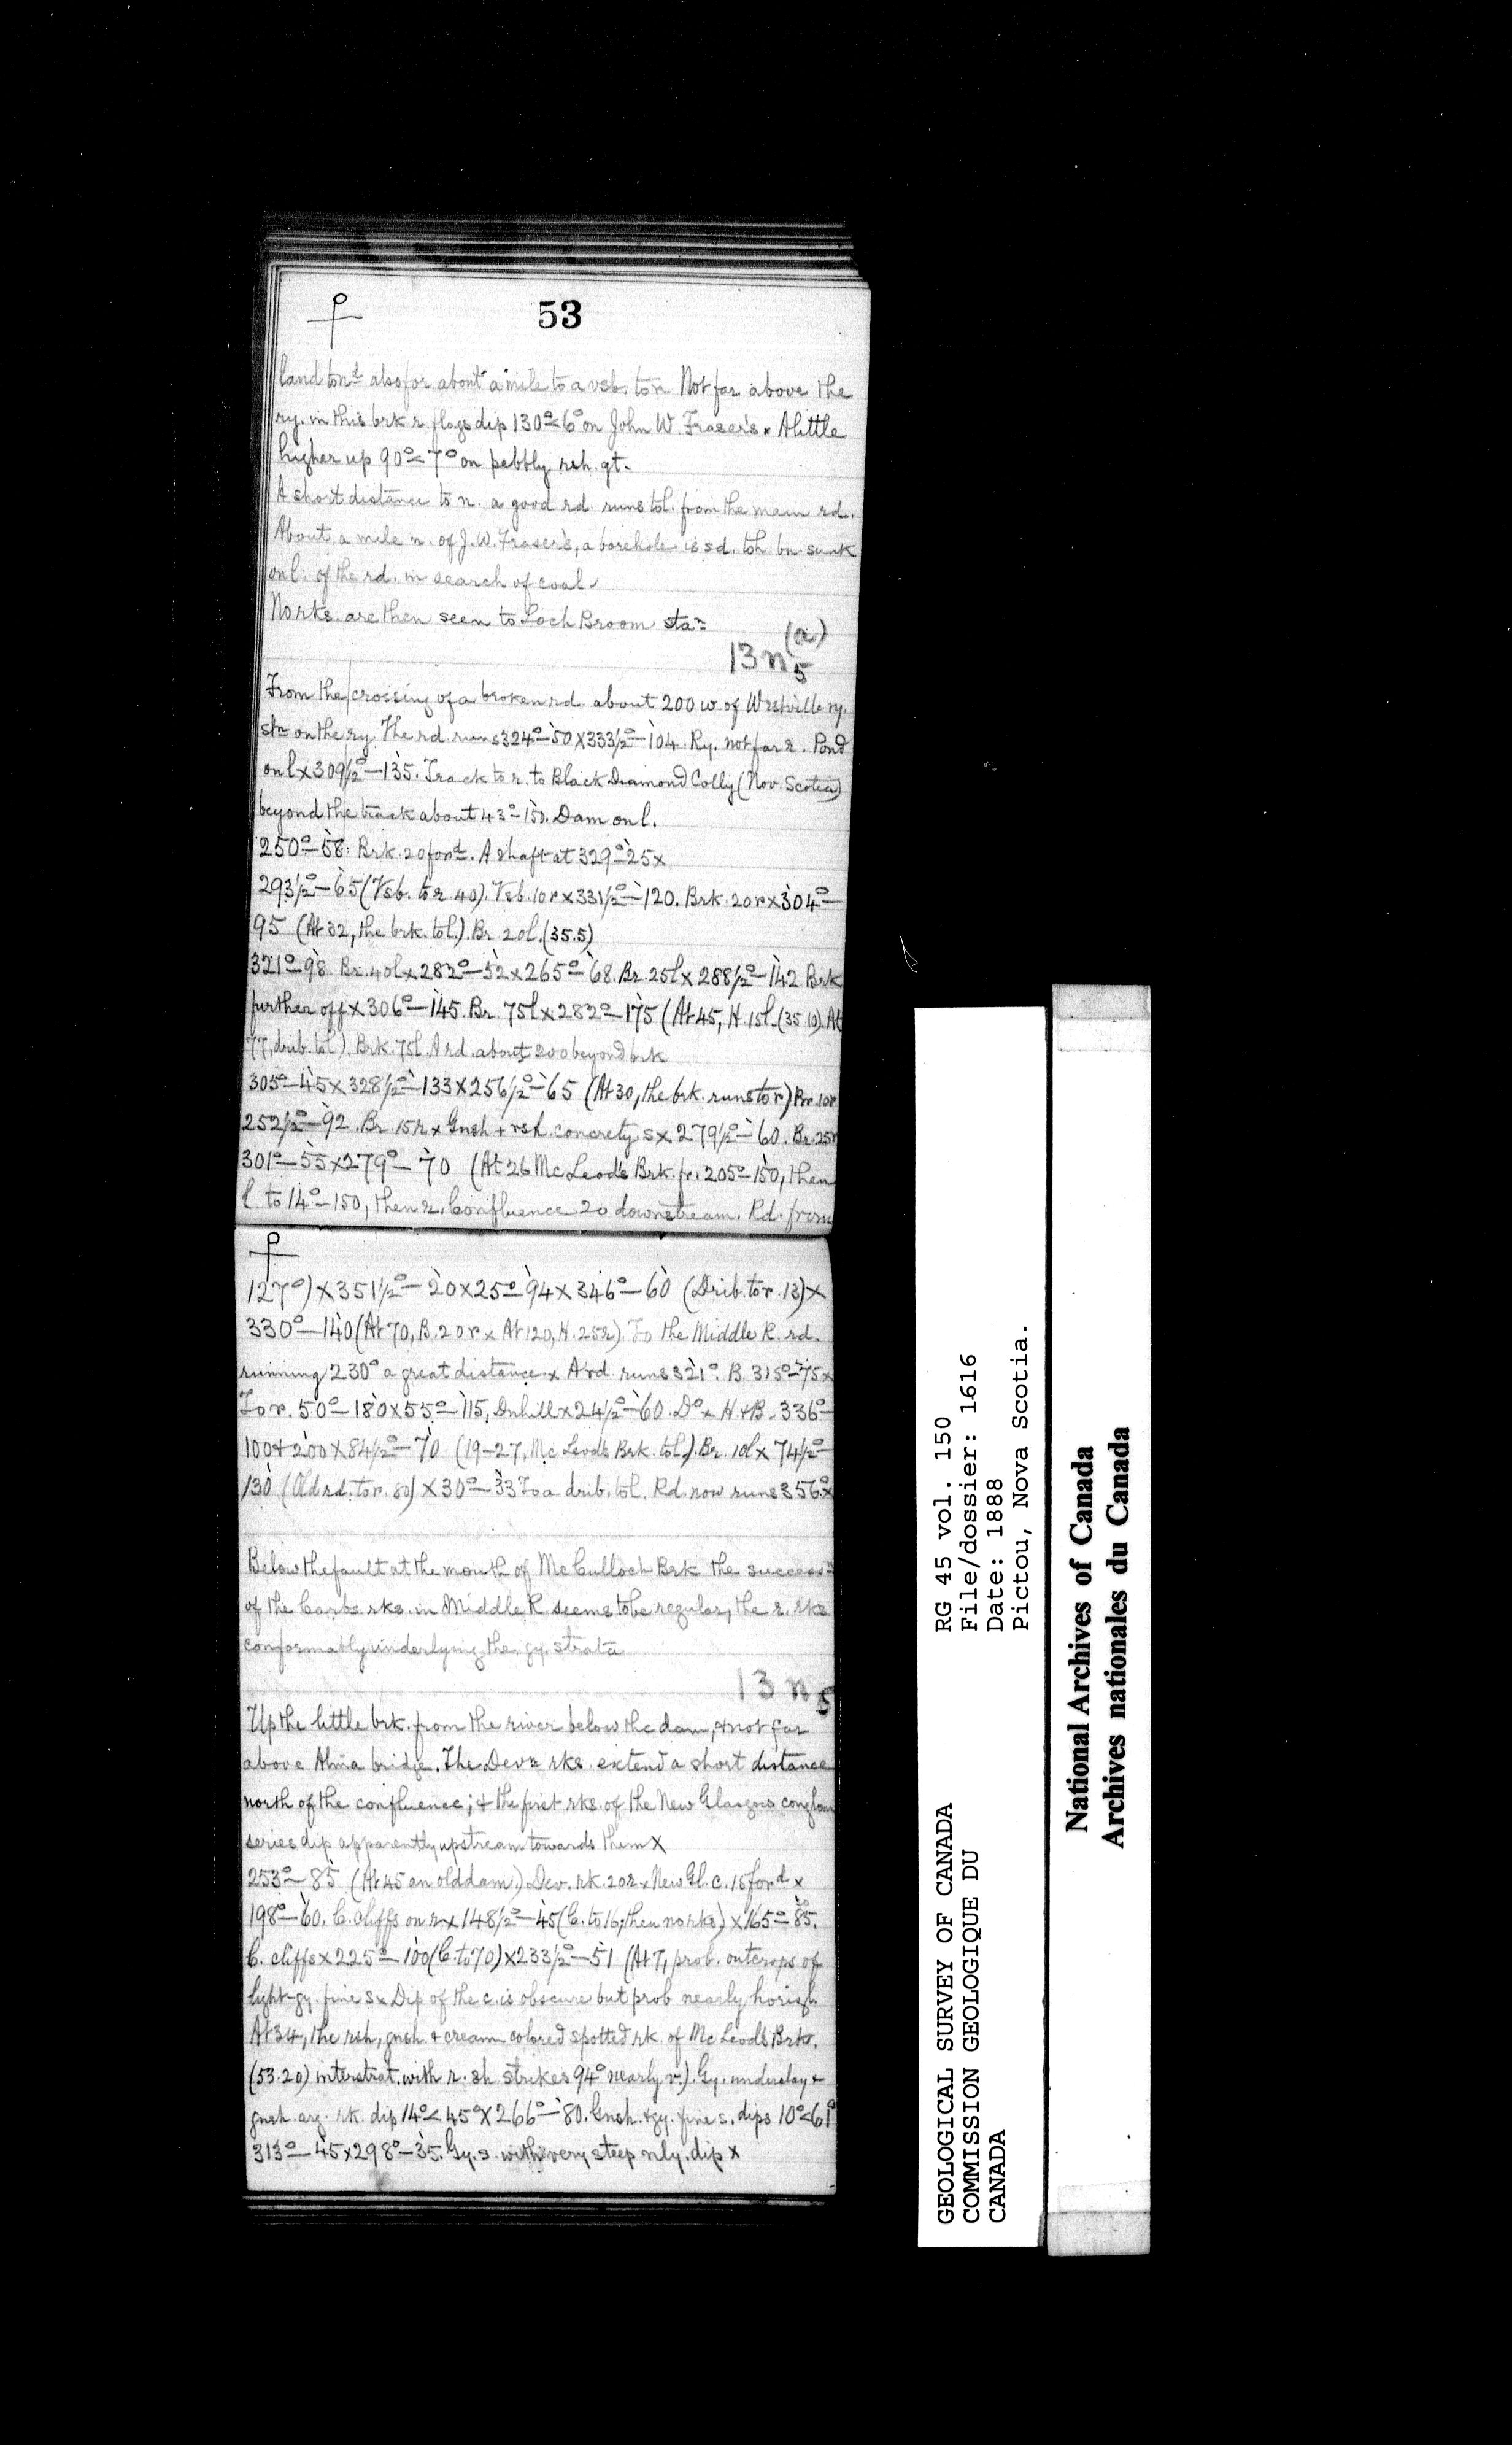 53
land to nd also for about a mile to a vsb. to r. Not far above the
ry. in this brk r. flags dip 130°<6° on John W. Fraser's x A little
higher up 90°<7° on pebbly rsh. gt.
A short distance to n. a good rd. runs to l. from the main rd.
About a mile n. of J.W. Fraser's, a borehole is sd. to h. bn. sunk
on l. of the rd. in search of coal.
No rks. are then seen to Loch Broom stan
(a)
13 n 5
From the crossing of a broken rd. about 200 w. of Westville ry.
stn on the ry. The rd. runs 324°–50 x 333½°–104. Ry. not far r. Pond
on l x 309½°–135. Track to r. to Black Diamond Colly (Nov. Scotia)
beyond the track about 43°–150. Dam on l.
250°–58. Brk. 20 ford. A shaft at 329°–25 x
293½°–65 (Vsb. to r. 40). Vsb. 10r x 331½°–120. Brk. 20r x 304°–
95 (At 32, the brk. to l.) Br. 20l. (35.5)
321°–98. Br. 40l x 282°–52 x 265°–68. Br. 25l x 288½°–142. Brk
further off x 306°–145. Br. 75l x 282°–175 (At 45, H. 15l. (35.10) At
77, drib. to l). Brk. 75l. A rd. about 200 beyond brk
305°–45 x 328½°–133 x 256½°–65 (At 30, the brk. runs to r) Br. 10r
252½°–92. Br. 15r x Gnsh + rsh. concrety. s x 279½°–60. Br. 25r
301°–55 x 279°–70 (At 26 McLeod's Brk. fr. 205°–150, then
l. to 14°–150, then r. Confluence 20 downstream. Rd. from
127°) x 351½°–20 x 25°–94 x 346°–60 (Drib. to r. 13) x
330°–140 (At 70, B. 20r x At 120, H. 25r) To the Middle R. rd.
running 230° a great distance x A rd. runs 321°. B. 315°–75 x
To r. 50°–180 x 55°–115, Dnhill x 24½°–60. Do x H. + B. 336°–
100 + 200 x 84½°–70 (19–27, McLeod's Brk. to l.) Br. 10l x 74½°–
130 (Old rd. to r. 80) x 30°–33 To a drib. to l. Rd. now runs 356° x
Below the fault at the mouth of McCulloch Brk the successn
of the Carbs rks. in Middle R. seems to be regular, the r. rks
conformably underlying the gy. strata
13 n 5
Up the little brk. from the river below the dam, & not far
above Alma bridge. The Devn rks. extend a short distance
north of the confluence; & the first rks. of the New Glasgow conglom
series dip apparently upstream towards them x
253°–85 (At 45 an old dam.) Dev. rk. 20r x New Gl. c. 15 ford x
198°–60. C. cliffs on r x 148½°–45 (C. to 16, then no rks.) x 165°–85.
C. cliffs x 225°–100 (C. to 70) x 233½°–51 (At 7, prob. outcrops of
light-gy. fine s x Dip of the c. is obscure but prob nearly horizl.
At 34, the rsh, gnsh. & cream colored spotted rk. of McLeod's Brk.
(53.20) interstrat. with r. sh strikes 94° nearly v.). Gy. underclay +
gnsh. arg. rk. dip 14°<45° x 266°–80. Gnsh. + gy. fine s. dips 10°<61°
313°–45 x 298°–35. Gy. s. with very steep nly. dip x
GEOLOGICAL SURVEY OF CANADA
COMMISSION GEOLOGIQUE DU
CANADA
RG 45 vol. 150
File/dossier: 1616
Date: 1888
Pictou, Nova Scotia.
National Archives of Canada
Archives nationales du Canada